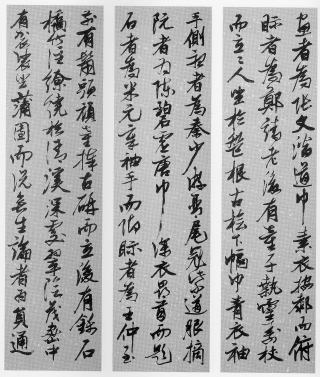 畫者為張文潛道巾素衣按郄而俯
眎者為鄭靖老後有童子執靈壽杖
而立二人坐於盤根古檜下幅巾青衣袖
手側聽者為秦少游長尾冠紫道服摘
阮者為陳碧虛唐巾深衣昂首而題
石者為米元章袖手而仰眎者為王仲至
前有鬅頭頑童捧古硯而立後有錦石
橋竹逕繚繞於清溪深處翠陰茂密中
有袈裟坐蒲團而說無生論者為圓通